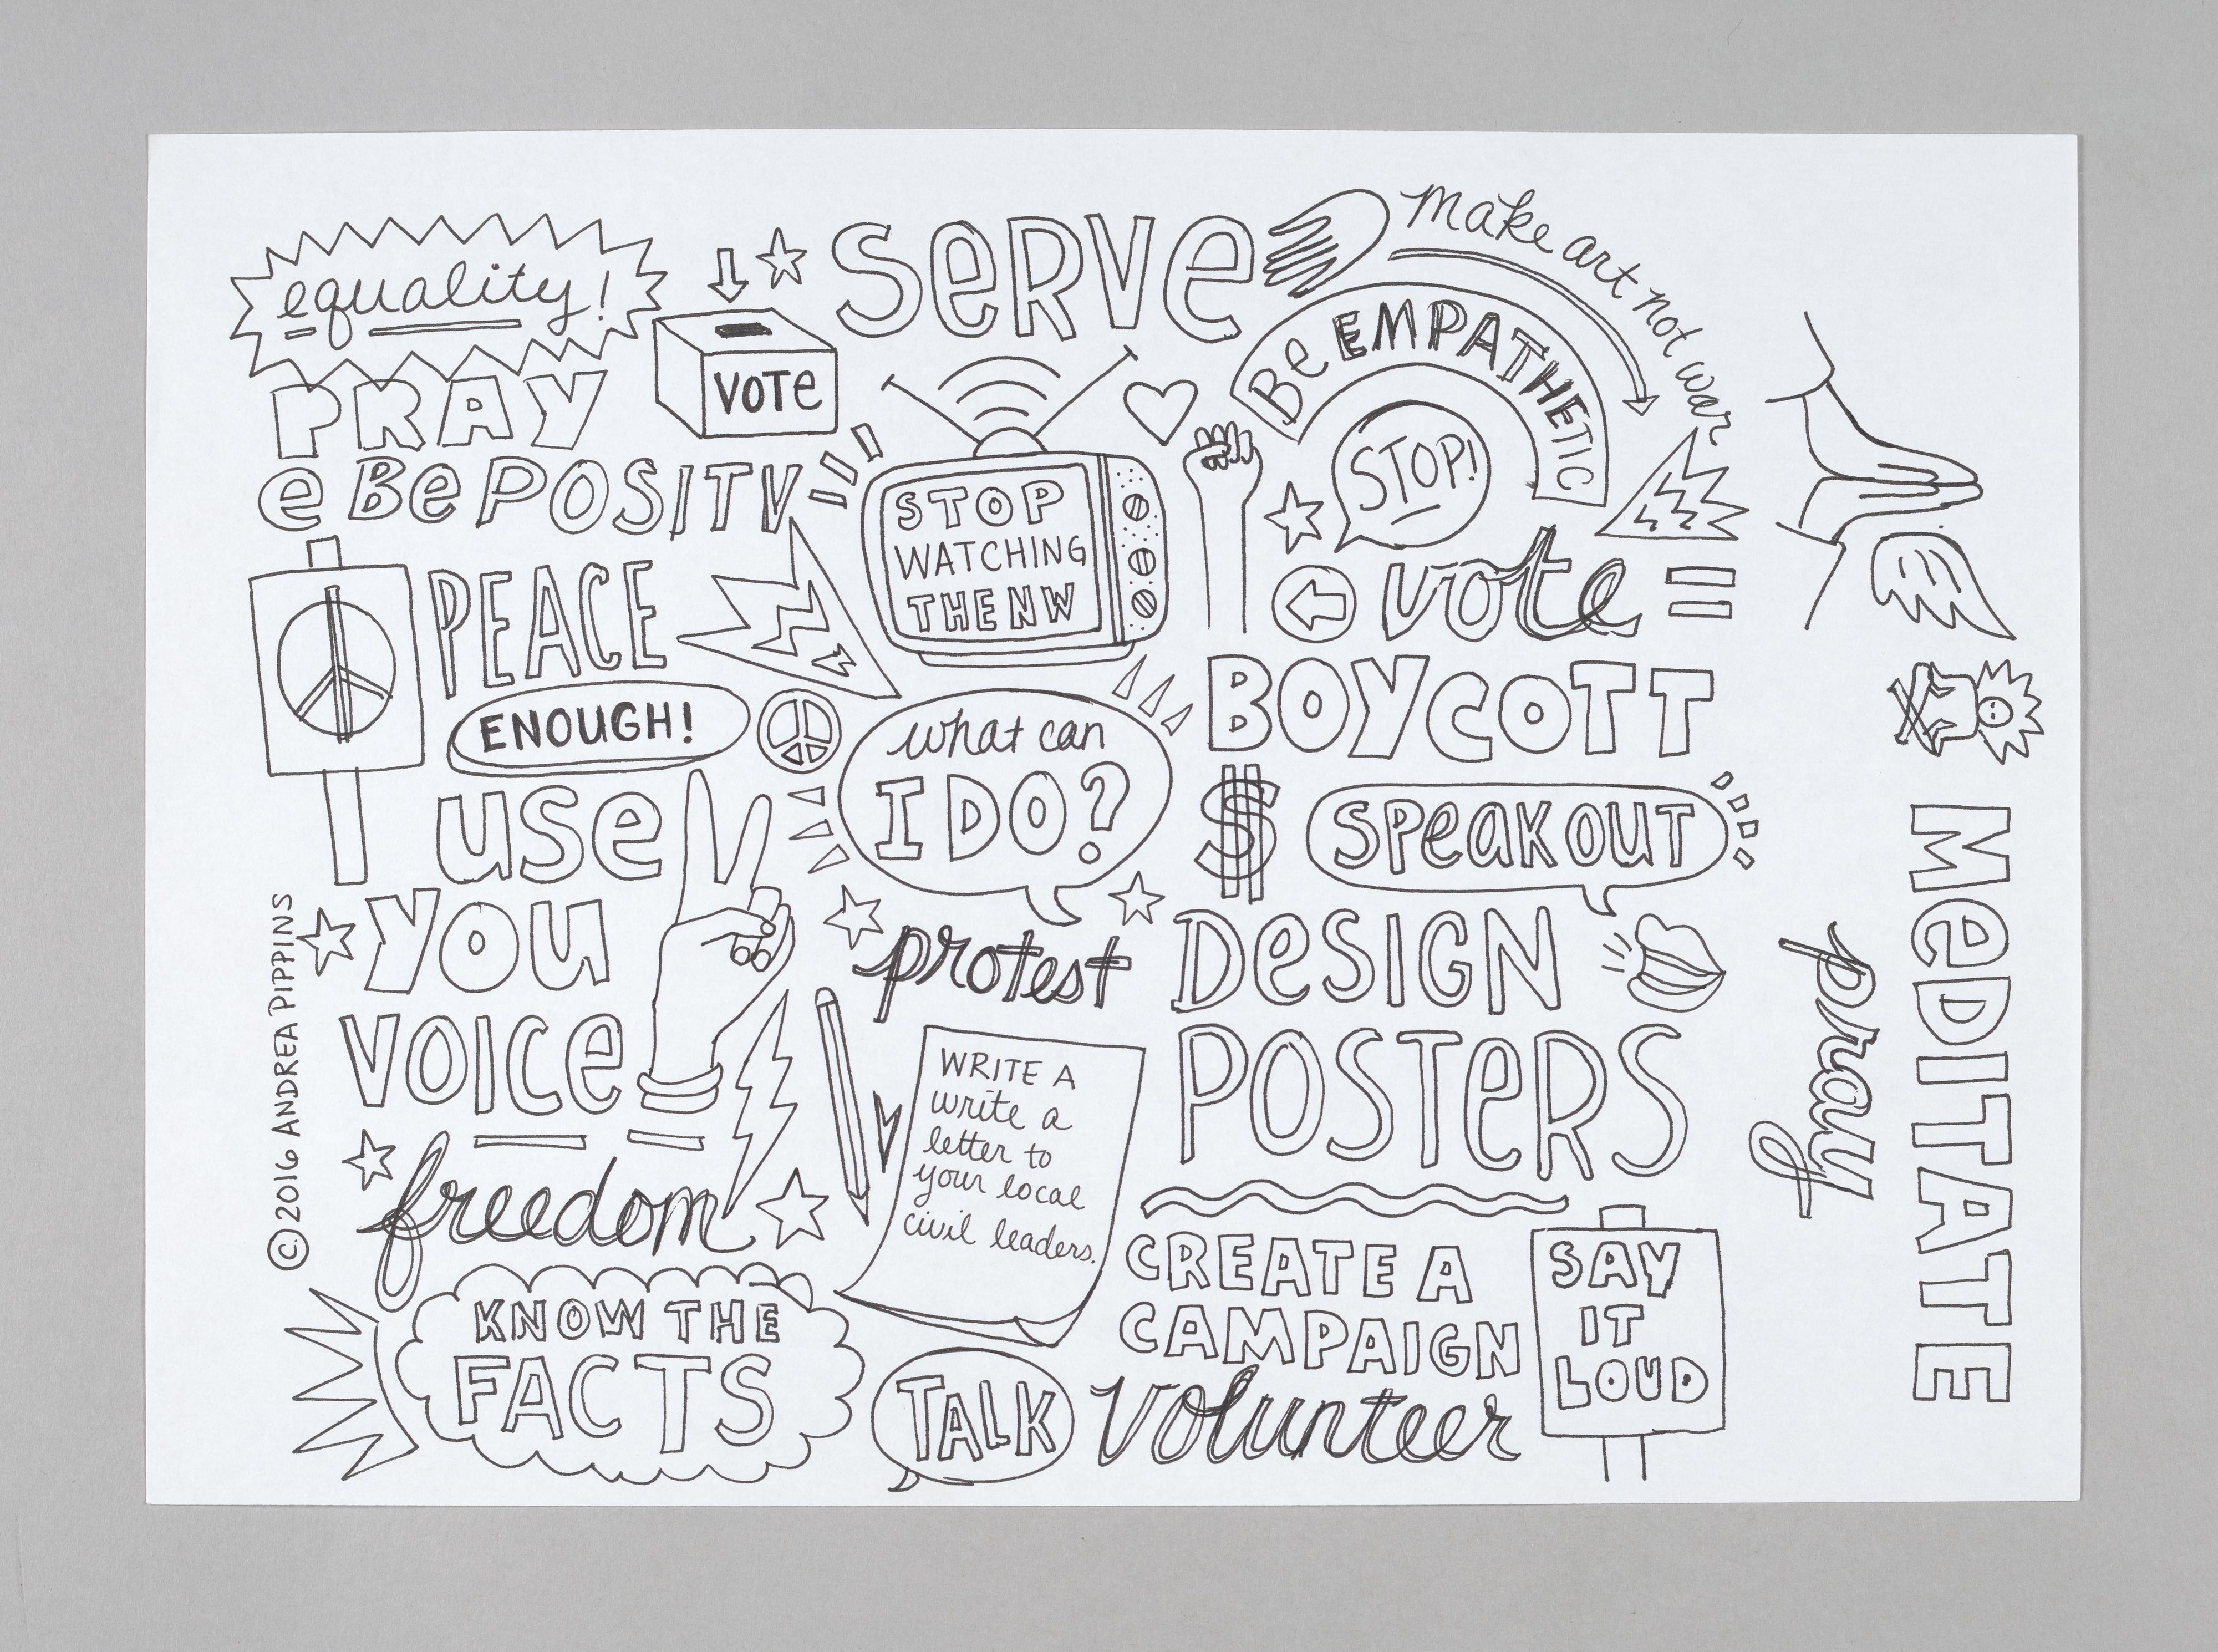 equality!
PRAY
e Be POSITV
VOTe
SeRVe
Make art not war
Be EMPATHETIC
STOP!
STOP
WATCHING
THE NW
PEACE
ENOUGH!
vote =
BOYCOTT
what can
I DO?
$
SPeaK OUT
use
you
VOICe
protest
DeSIGN
POSTeRS
freedom
WRITE A
write a
letter to
your local
civil leaders.
KNOW THE
FACTS
TALK
CREATE A
CAMPAIGN
Volunteer
SAY
IT
LOUD
pray
MeDITATE
© 2016 ANDREA PIPPINS